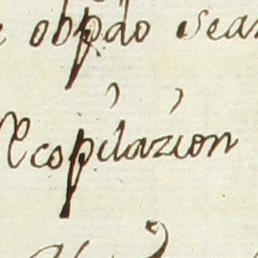 obpdo sea
Recopilazion